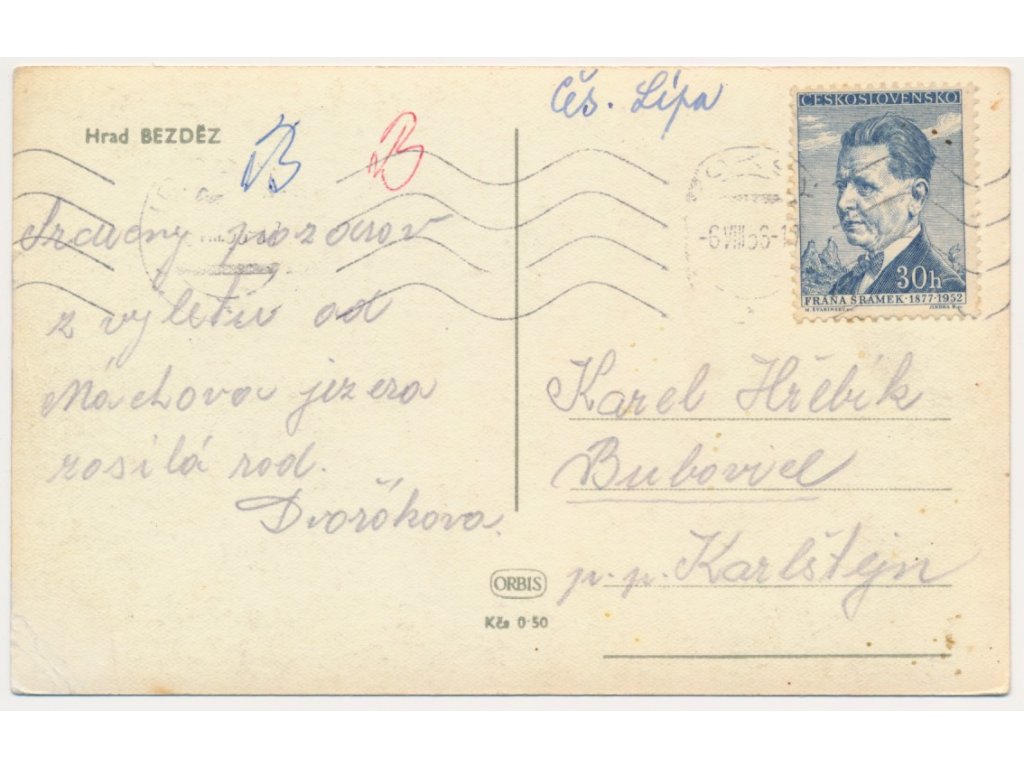 Hrad BEZDĚZ
Srdečný pozdrav
z výletu od
Máchova jezera
zasílá rod.
Dvořákova
ORBIS
Kčs 0·50
Čes. Lípa
ČESKOSLOVENSKO
30h
FRÁŇA ŠRÁMEK·1877-1952
M. ŠVABINSKÝ
-6.VIII.56-1
Karel Hřebík
Bubovice
p.p. Karlštejn